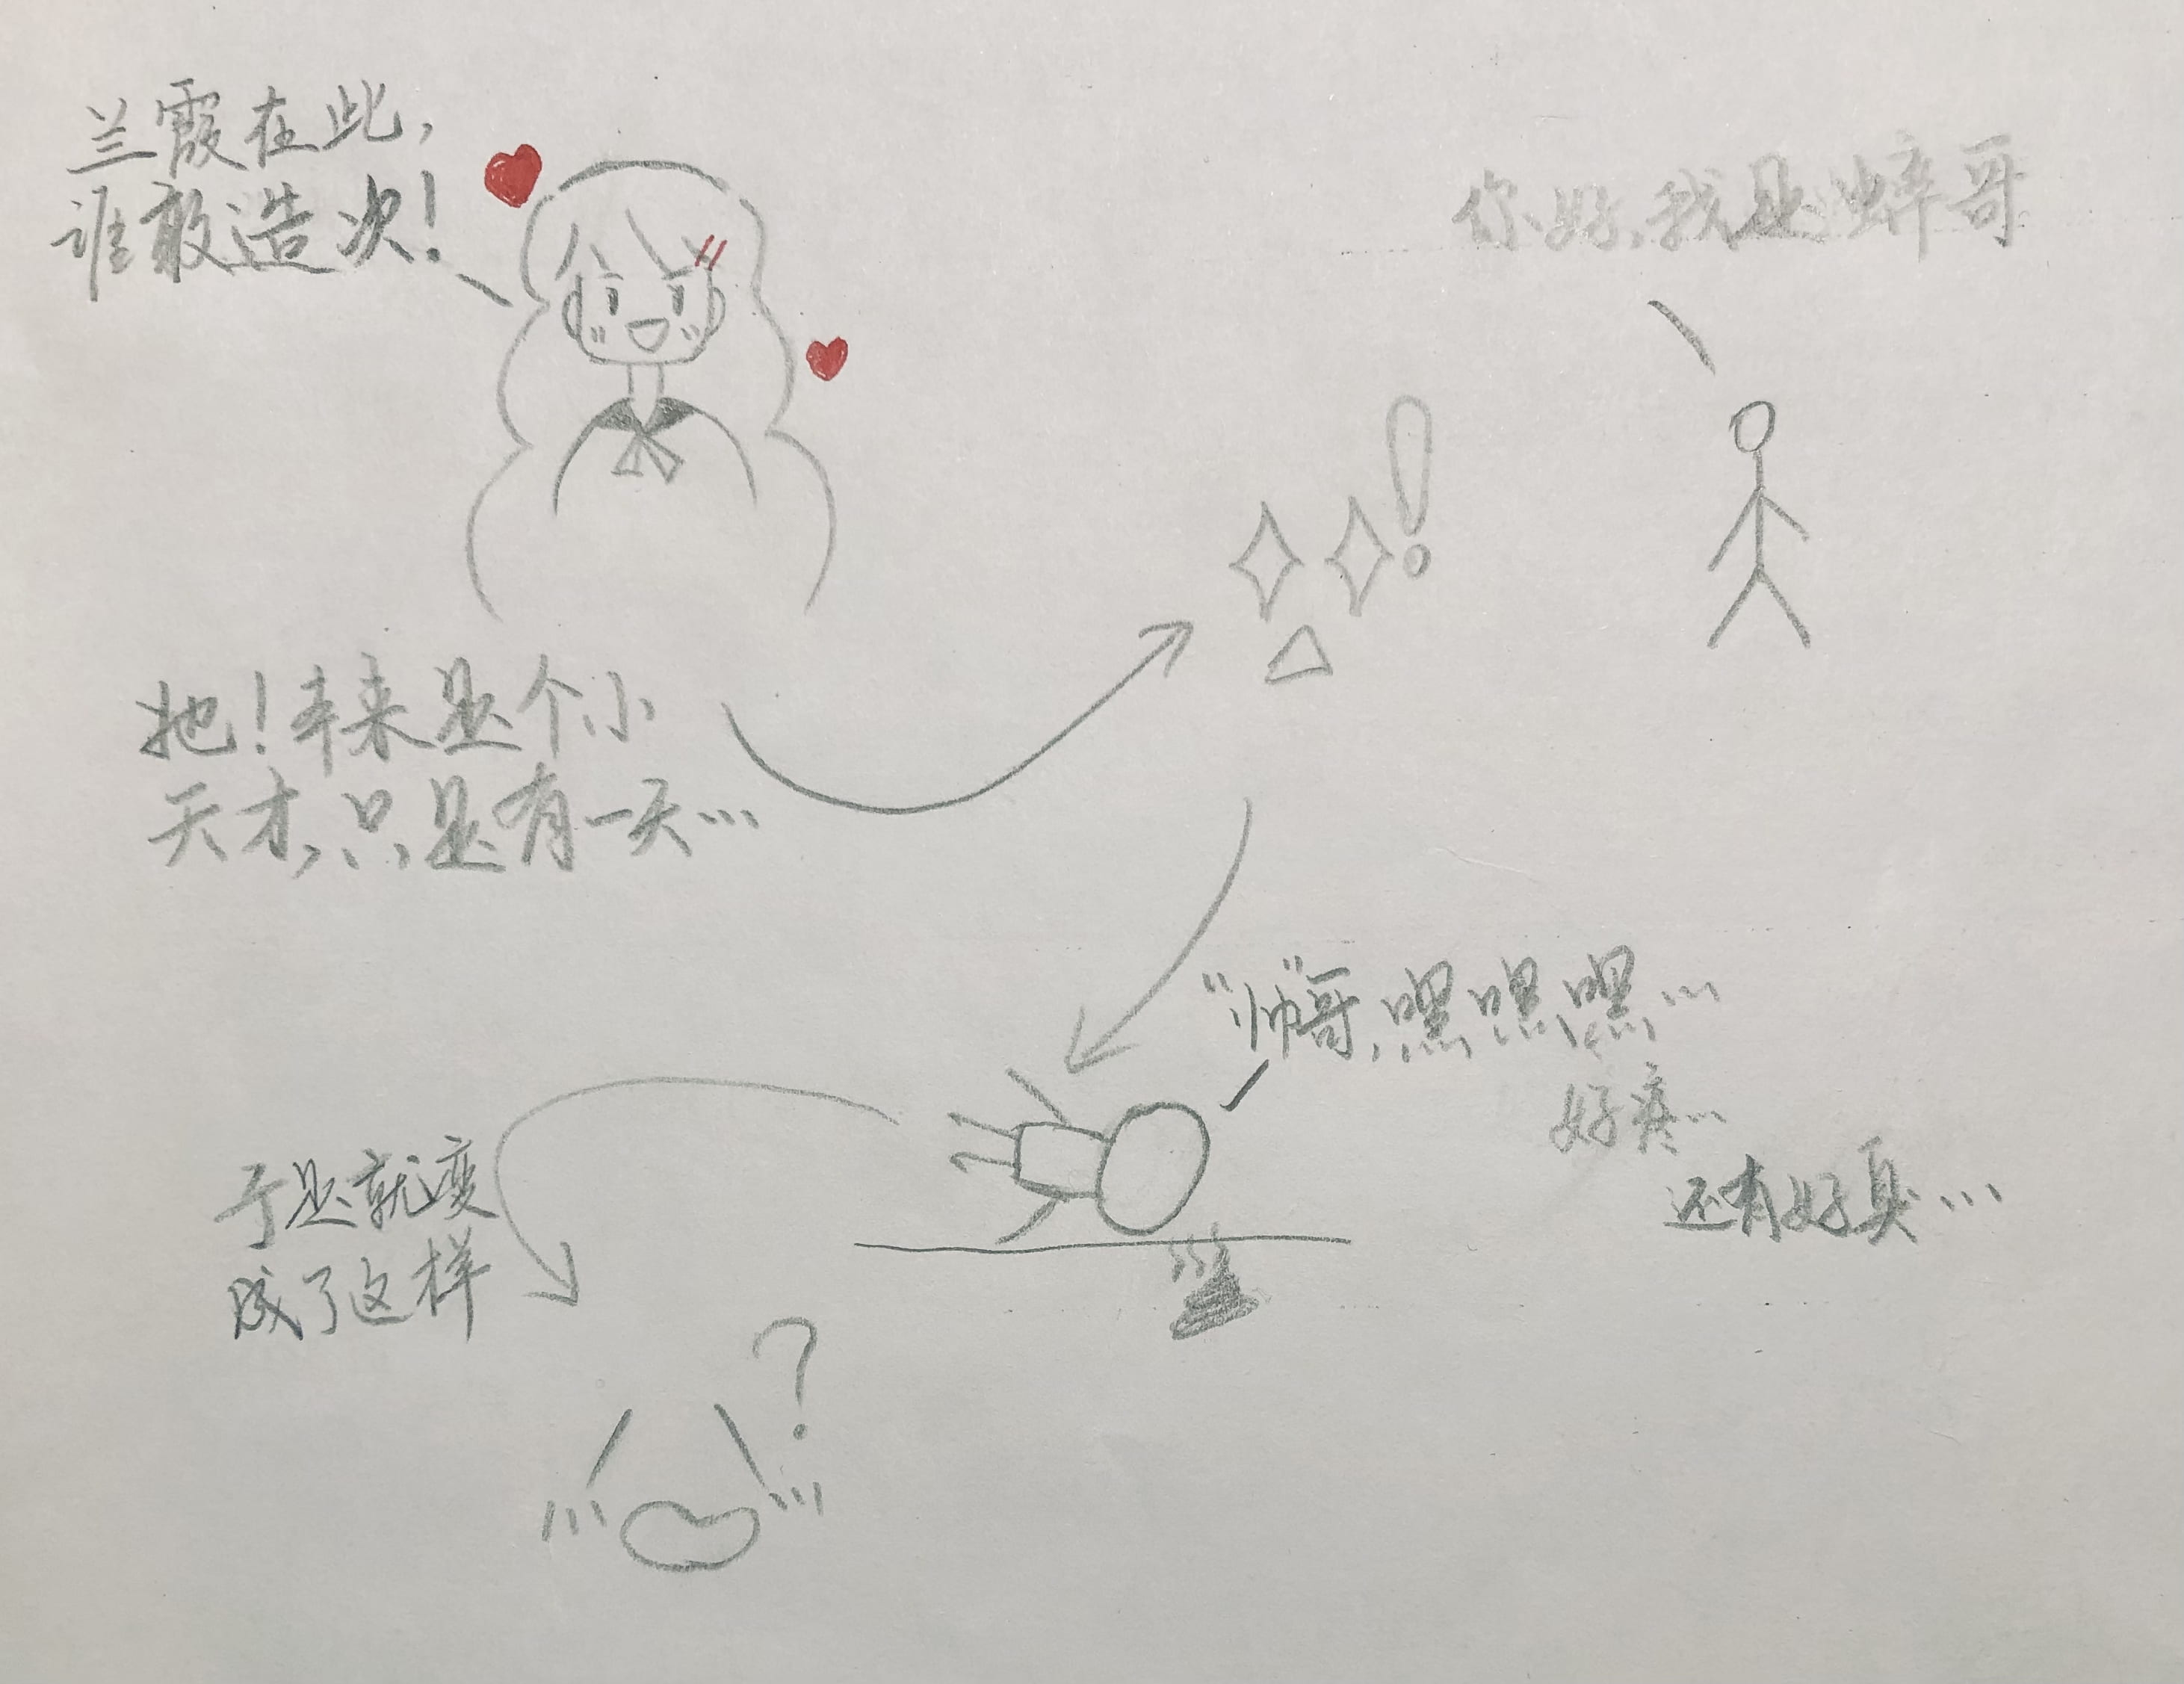 兰霞在此，
谁敢造次！
你好，我是蟀哥
她！本来是个小
天才，只是有一天…
"帅"哥，嘿嘿嘿…
好疼…
还有好臭…
于是就变
成了这样
？